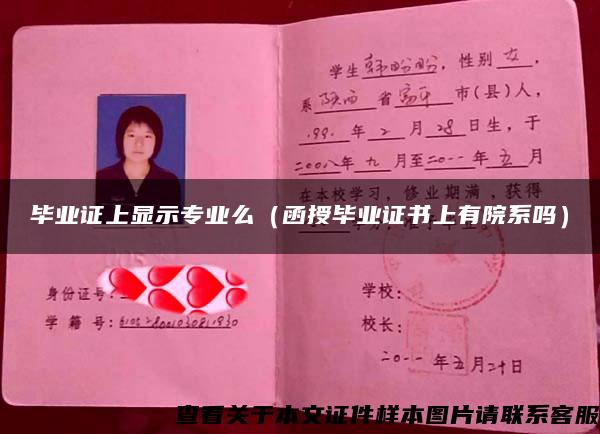 学生韩盼盼，性别女，
系陕西省富平市(县)人，
199 年2月28日生，于
二〇〇八年九月至二〇一一年五月
在本校学习，修业期满，获得
毕业证上显示专业么（函授毕业证书上有院系吗）
身份证号：
学 籍 号：
学校：
校长：
二〇一一年五月二十日
查看关于本文证件样本图片请联系客服